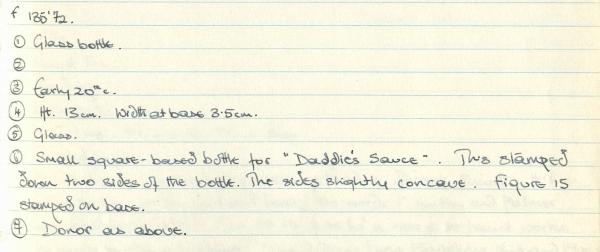 f 135'72.
① Glass bottle.
②
③ Early 20th c.
④ Ht. 13cm. Width at base 3.5cm.
⑤ Glass.
⑥ Small square-based bottle for "Daddie's Sauce". This stamped
down two sides of the bottle. The sides slightly concave. Figure 15
stamped on base.
⑦ Donor as above.